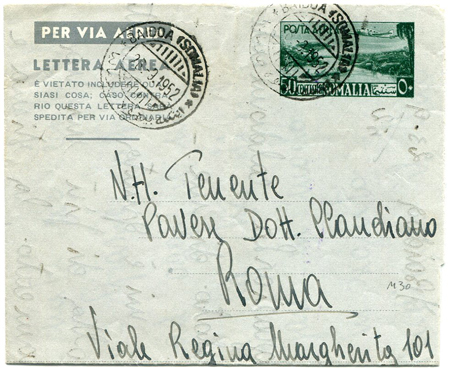 PER VIA AEREA
LETTERA AEREA
È VIETATO INCLUDERE QUAL
SIASI COSA; CASO CONTRA
RIO QUESTA LETTERA SARÀ
SPEDITA PER VIA ORDINARIA
BAIDOA (SOMALIA)
1952
BAIDOA (SOMALIA)
1952
POSTA
50
SOMALIA
N.H. Tenente
Pavese Dott. Claudiano
Roma
M30
Viale Regina Margherita 101